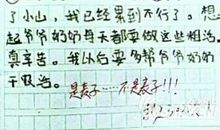 了小山，我已经累到不行了。想
起爷爷奶奶每天都要做这些粗活，
真辛苦。我以后要多帮爷爷奶奶的
是麦子……不是表子!!!